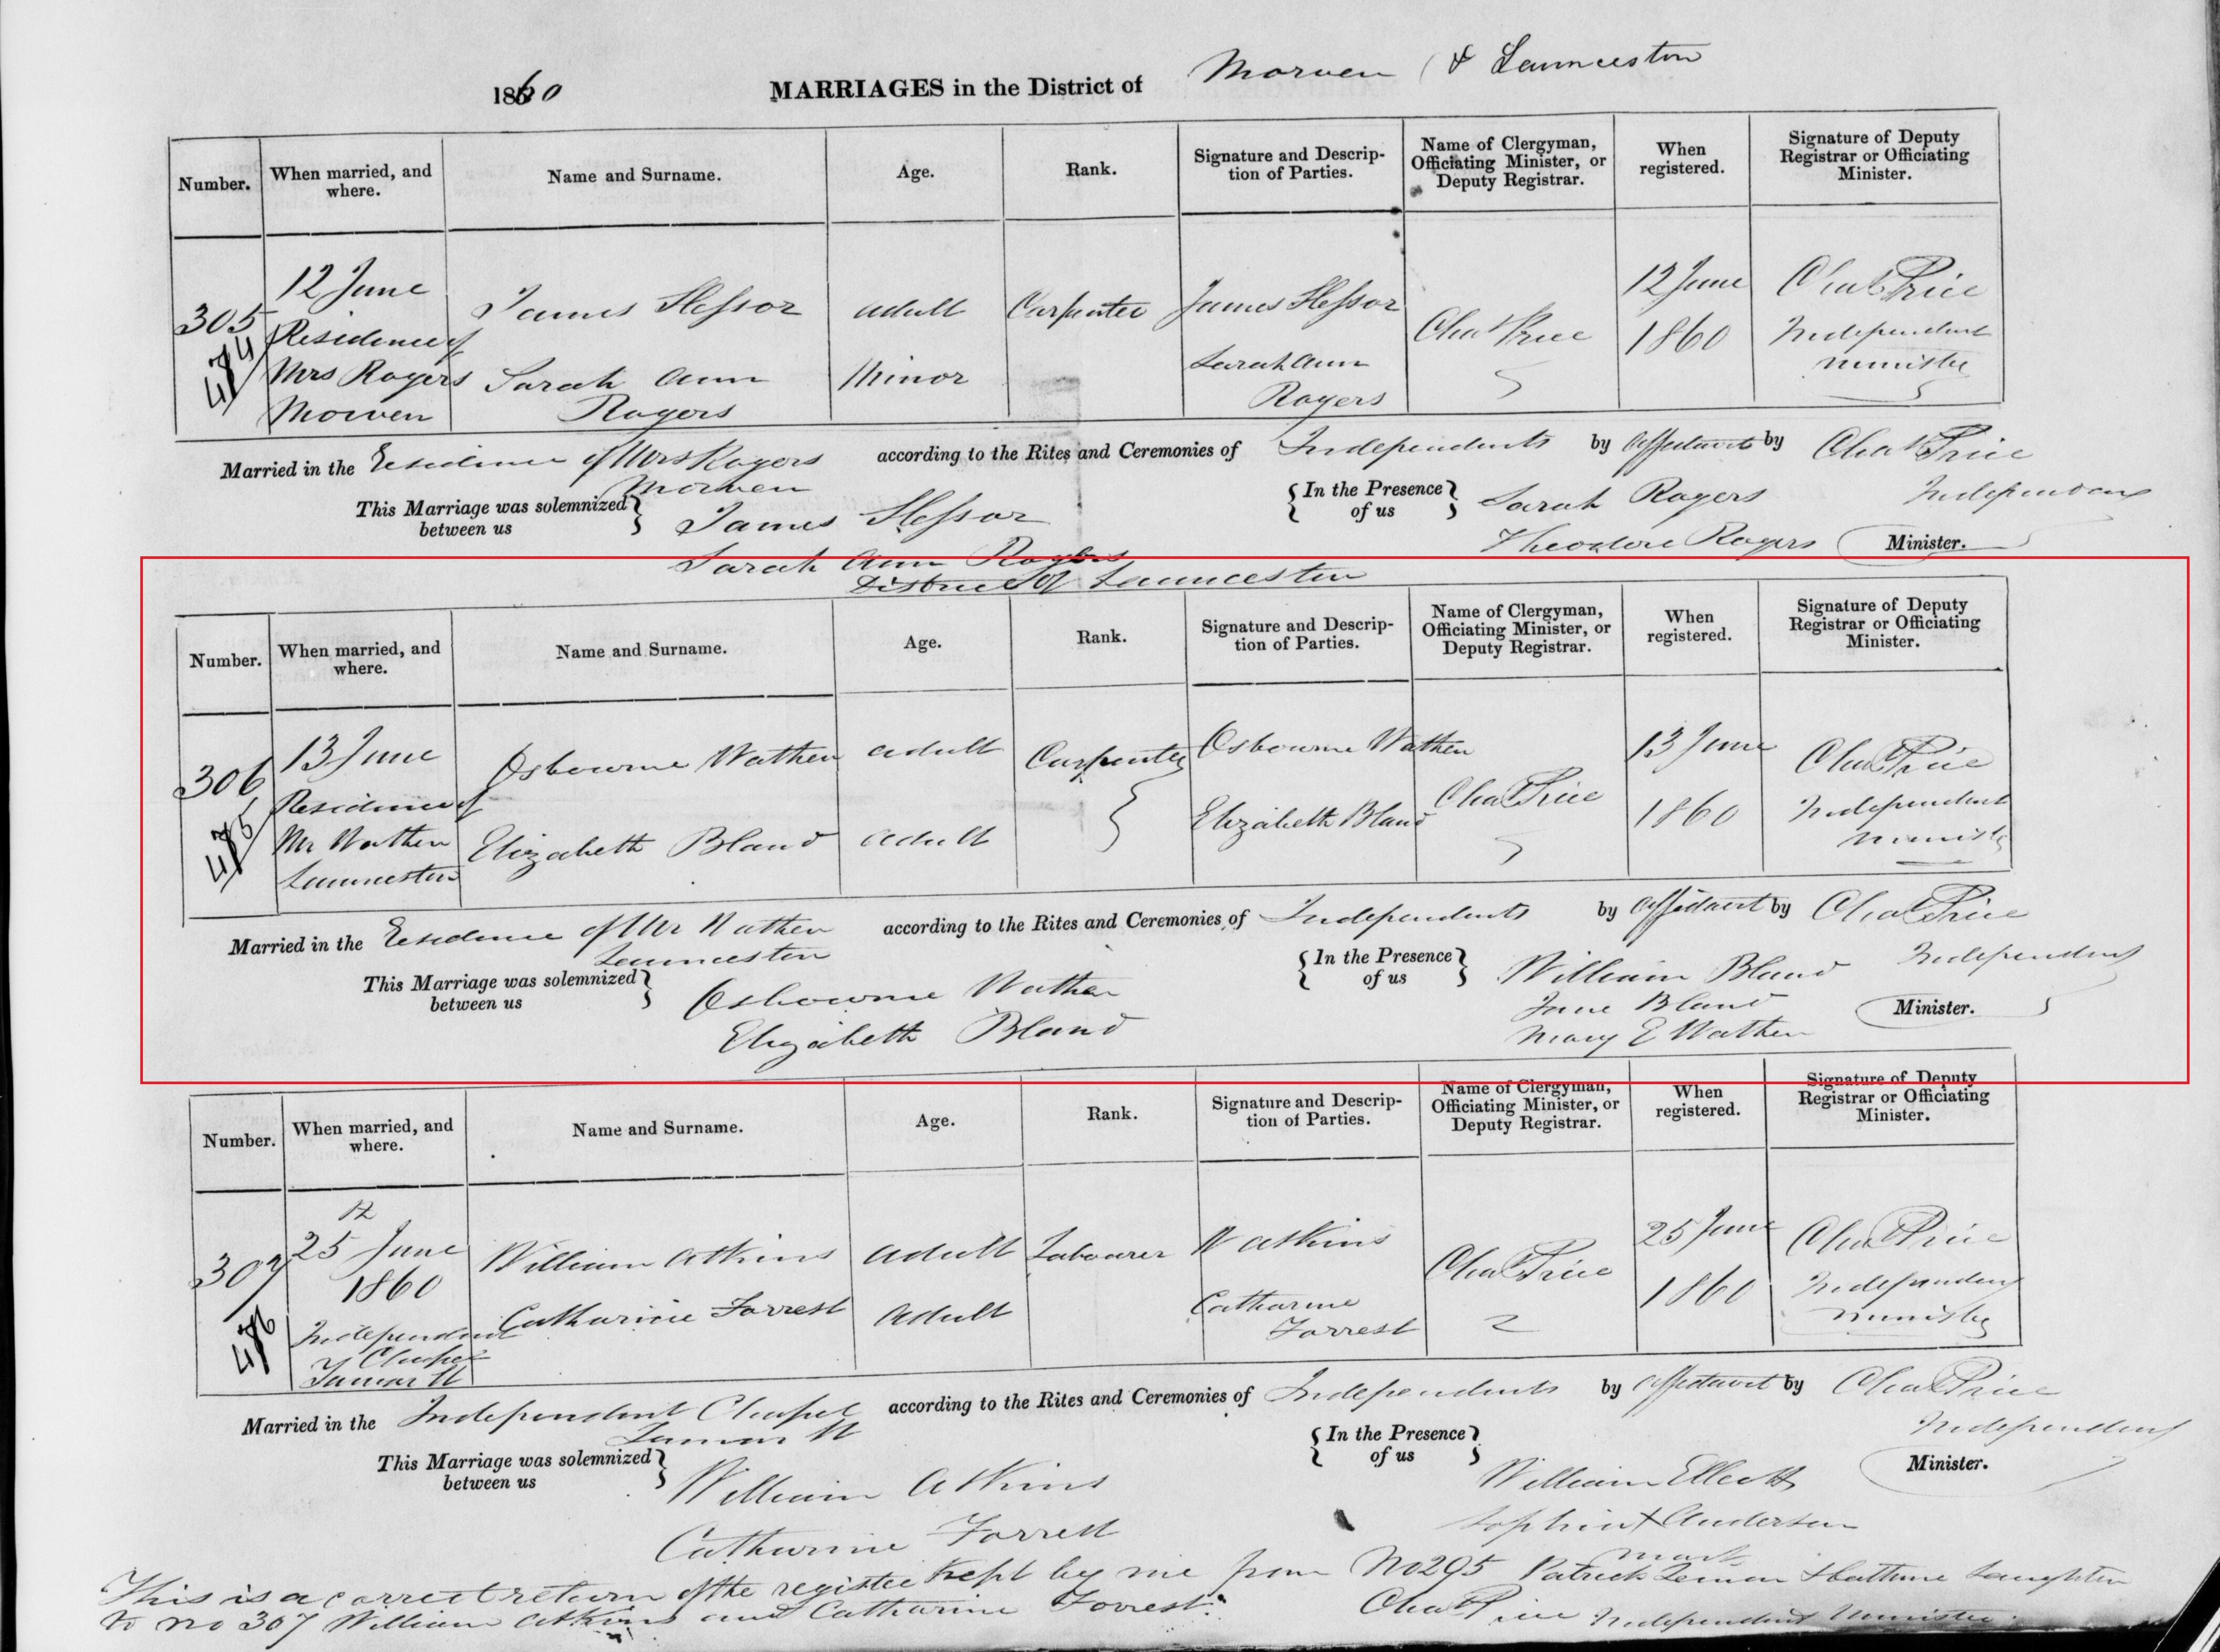 1860 MARRIAGES in the District of Morven (& Launceston
Number. When married, and where. Name and Surname. Age. Rank. Signature and Description of Parties. Name of Clergyman, Officiating Minister, or Deputy Registrar. When registered. Signature of Deputy Registrar or Officiating Minister.
305
474
12 June
Residence of
Mrs Rogers
Morven
James Slessor adult Carpenter James Slessor
Sarah Ann Rogers Minor Sarah Ann Rogers
Chas Price
12 June
1860
Chas Price
Independent
Minister
Married in the Residence of Mrs Rogers according to the Rites and Ceremonies of Independents by Affidavit by Chas Price
Morven
Independent
This Marriage was solemnized between us James Slessor In the Presence of us Sarah Rogers
Sarah Ann Rogers Theodore Rogers Minister.
District of Launceston
Number. When married, and where. Name and Surname. Age. Rank. Signature and Description of Parties. Name of Clergyman, Officiating Minister, or Deputy Registrar. When registered. Signature of Deputy Registrar or Officiating Minister.
306
475
13 June
Residence of
Mr Wathen
Launceston
Osbourne Wathen adult Carpenter Osbourne Wathen
Elizabeth Bland adult Elizabeth Bland
Chas Price
13 June
1860
Chas Price
Independent
Minister
Married in the Residence of Mr Wathen according to the Rites and Ceremonies of Independents by Affidavit by Chas Price
Launceston
Independent
This Marriage was solemnized between us Osbourne Wathen In the Presence of us William Bland
Elizabeth Bland Jane Bland Minister.
Mary E Wathen
Number. When married, and where. Name and Surname. Age. Rank. Signature and Description of Parties. Name of Clergyman, Officiating Minister, or Deputy Registrar. When registered. Signature of Deputy Registrar or Officiating Minister.
307
476
25 June
1860
Independent
Chapel
Tamar St
William Atkins adult Labourer W Atkins
Catharine Forrest adult Catharine Forrest
Chas Price
25 June
1860
Chas Price
Independent
Minister
Married in the Independent Chapel according to the Rites and Ceremonies of Independents by Affidavit by Chas Price
Tamar St
Independent
This Marriage was solemnized between us William Atkins In the Presence of us William Ellcott
Catharine Forrest Sophia X Anderson Minister.
mark
This is a correct return of the register kept by me from No 295 Patrick
to no 307 William Atkins and Catharine Forrest. Chas Price Independent Minister.